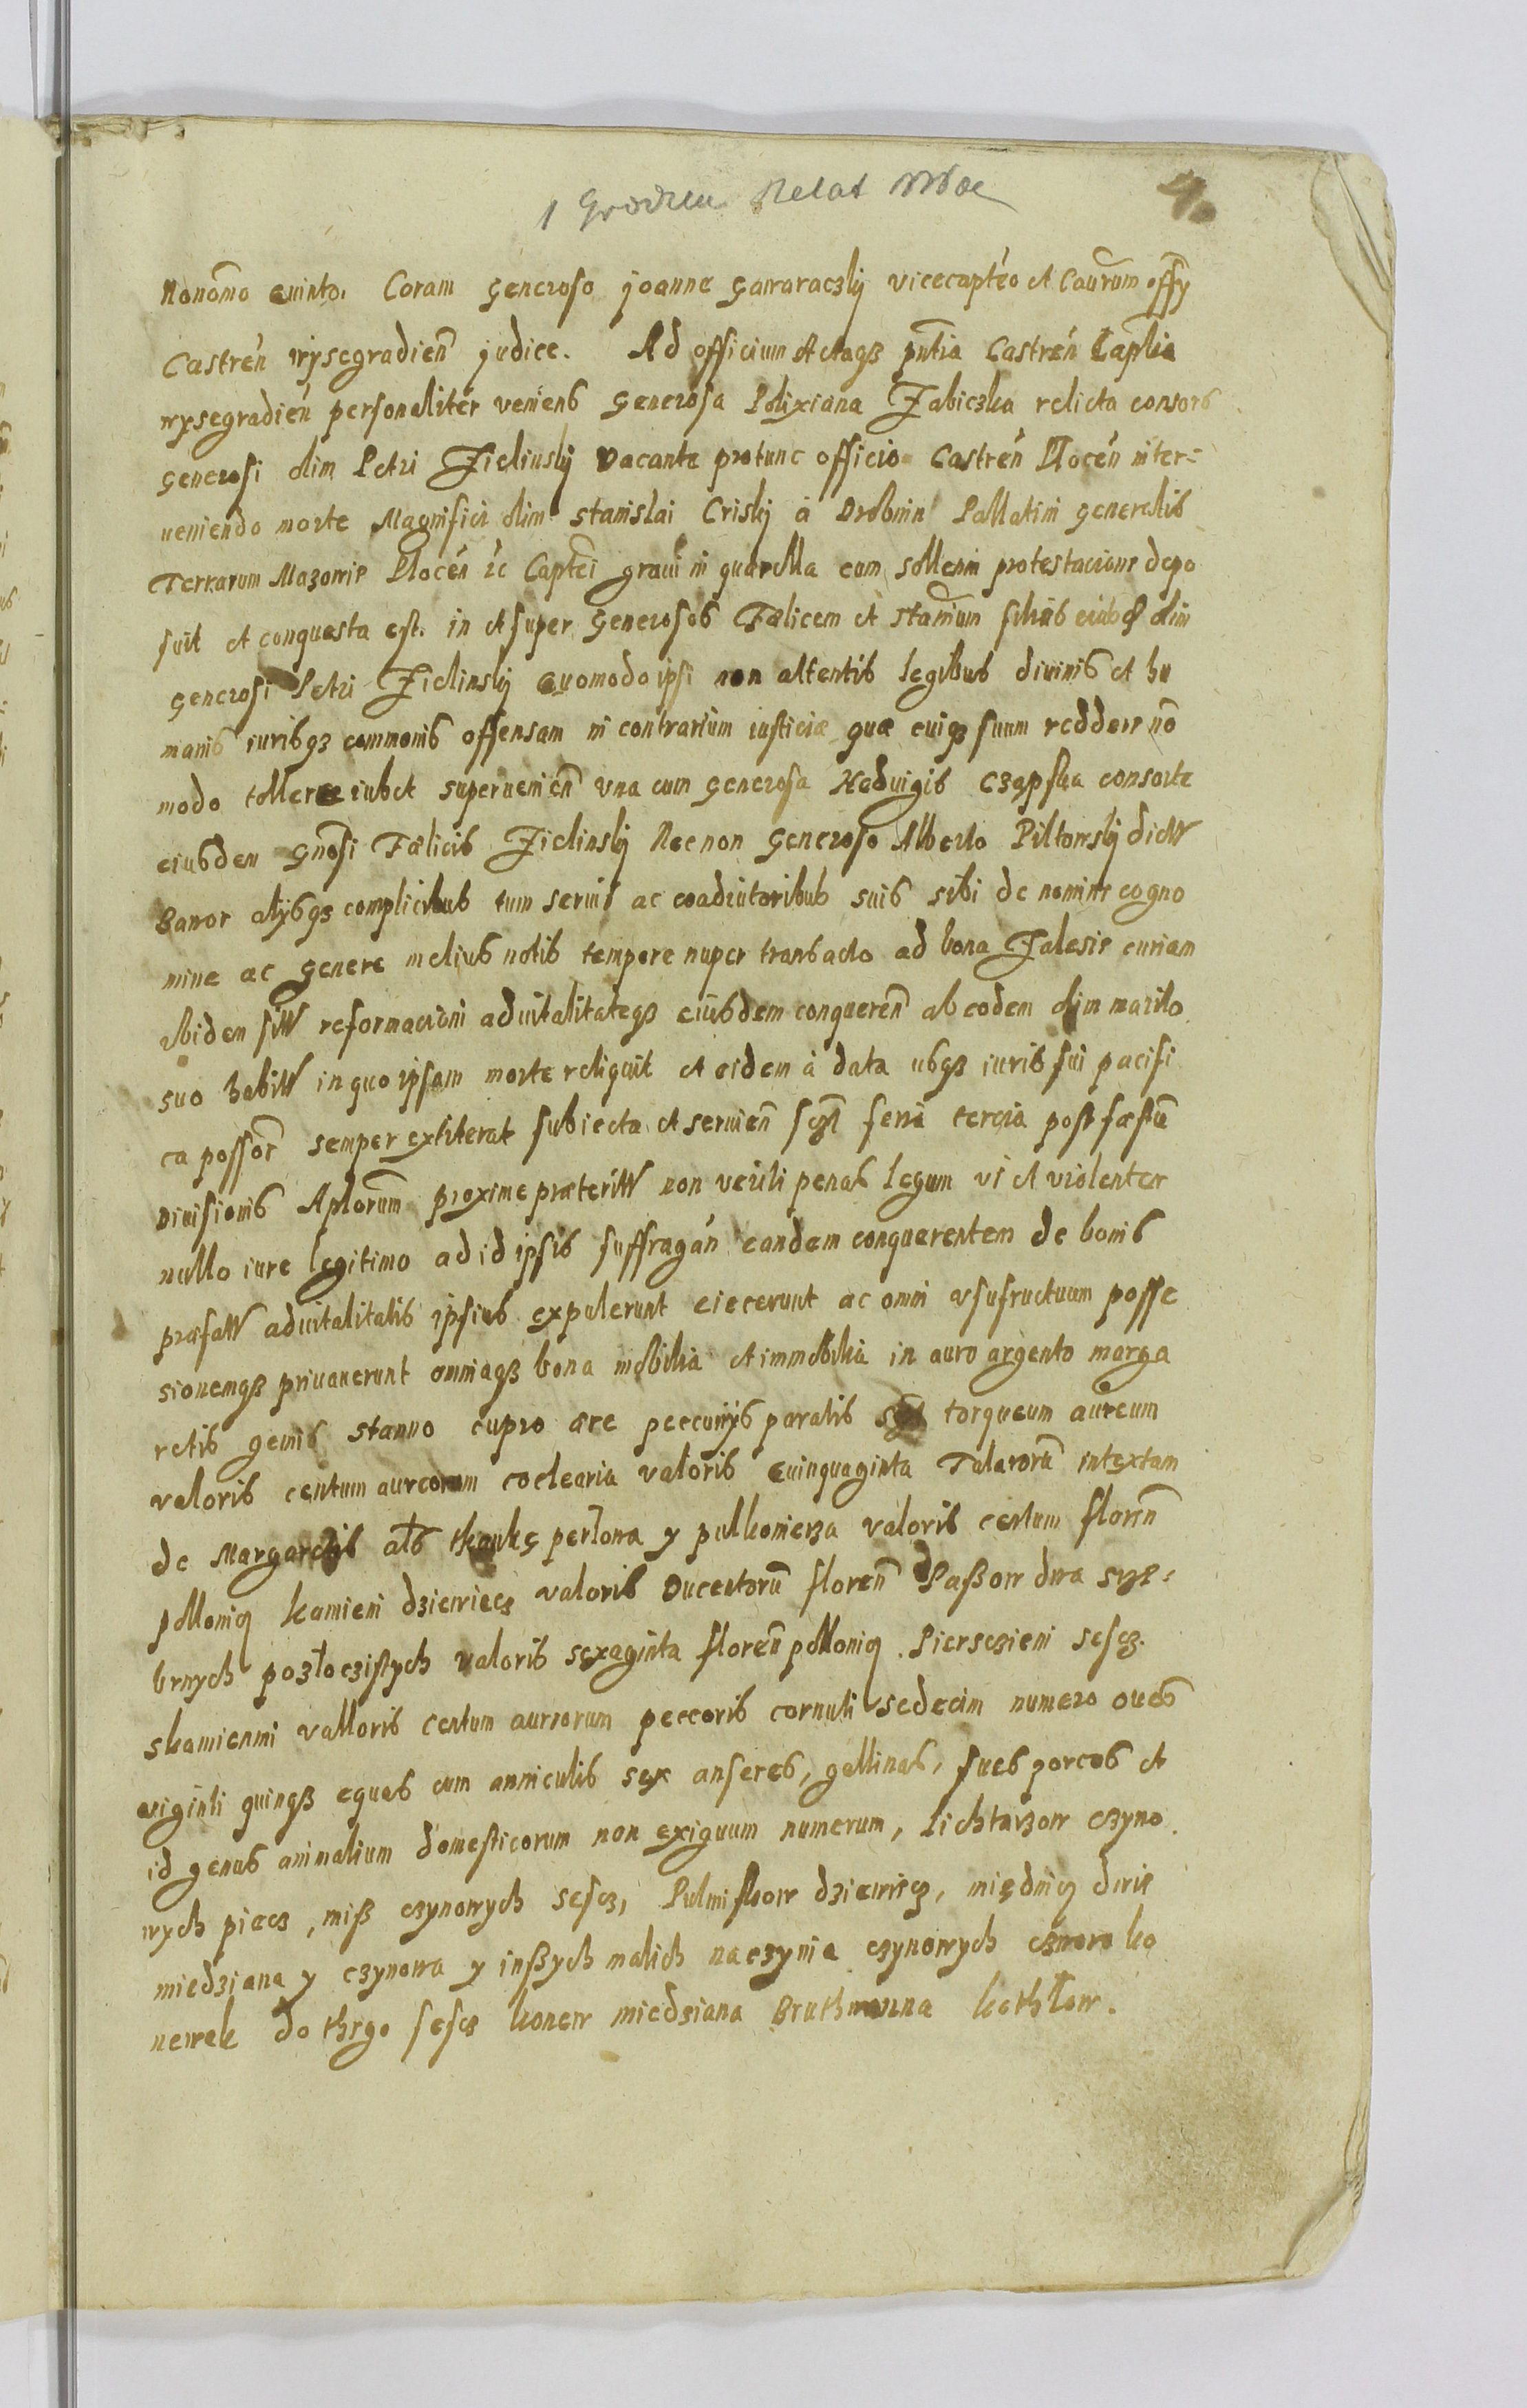 1 Grodzen Relat Wde 4.
Nonõmo Quinto. Coram Generoso joanne Gawaraczkÿ vicecaptẽo et Caurum offÿ
Castreń wÿsegradień judice. Ad officium Actaqȝ pñtia Castreń Caplia
wysegradień personaliter veniens Generosa Polixiana Zabiczka relicta consors
Generosi olim Petri Zielinskÿ vacante protunc officio Castreń Płoceń inter=
ueniendo morte Magnifici olim Stanislai Criskÿ à Drobnin Pallatini generalis
Terrarum Mazowie Płoceń ꝛc Captẽi graui in quærella cum sollenni protestacione depo
suit et conquesta est. in et super Generosos Fælicem et Stanium filios eiusd olim
Generosi Petri Zielinskÿ Quomodo ipsi non attentis legibus diuinis et hu
manis iuribqȝ commonis offensam in contrarium iusticiæ quæ cuiqȝ suum reddere nõ
modo tollere iubet superuenień vna cum Generosa Heduigis Czapska consorte
eiusdem Gnosi Fælicis Zielinskÿ Necnon Generoso Alberto Piltowskÿ dictt
Banor alÿsqȝ complicibus tum seruis ac coadiutoribus suis sibi de nomine cogno
mine ac genere melius notis tempore nuper transacto ad bona Zalesie curiam
ibidem sitt reformacioni aduitalitateqȝ eiusdem conquereń ab eodem olim marito
suo habitt in quo ipsam morte reliquit et eidem à data usqȝ iuris sui pacifi
ca possoř semper extiterat subiecta et seruień sczl feria tercia post fæstũ
Diuisionis Aplorum proxime præteritt non veriti penas legum vi et violenter
nullo iure legitimo ad id ipsis suffragań eandem conquerentem de bonis
præfatt aduitalitatis ipsius expulerunt eiecerunt ac omni vsufructuum posse
sionemqȝ priuauerunt omniaqȝ bona mobilia et immobilia in auro argento marga
retis gemis stanno cupro ære peccunÿs paratis sczl torqueum aureum
valoris centum aureorum coclearia valoris Quinquaginta Talarorũ intextam
de Margaretis als tkankę perłowa y pulkonierza valoris centum floreń
pollonicz kamieni dziewiecz valoris Ducentorũ floreń Paßow dwa sre=
brnych pozłoczistych valoris sexaginta floreń pollonicz. Piersczieni sescz.
skamienmi valloris centum aureorum peccoris cornuti sedecim numero oues
viginti quinqȝ equas cum anniculis sex anseres, gallinas, sues porcos et
id genus animalium domesticorum non exiguum numerum, Lichtarzow czyno
wych piecz, miß czynowych sescz, Pulmiskow dziewiecz, międnicz dwie
miedziana y czynowa y inßych malich naczynia czynowych czworo ko
newek do thego sescz konew miedziana Bruthwanna kothłow.